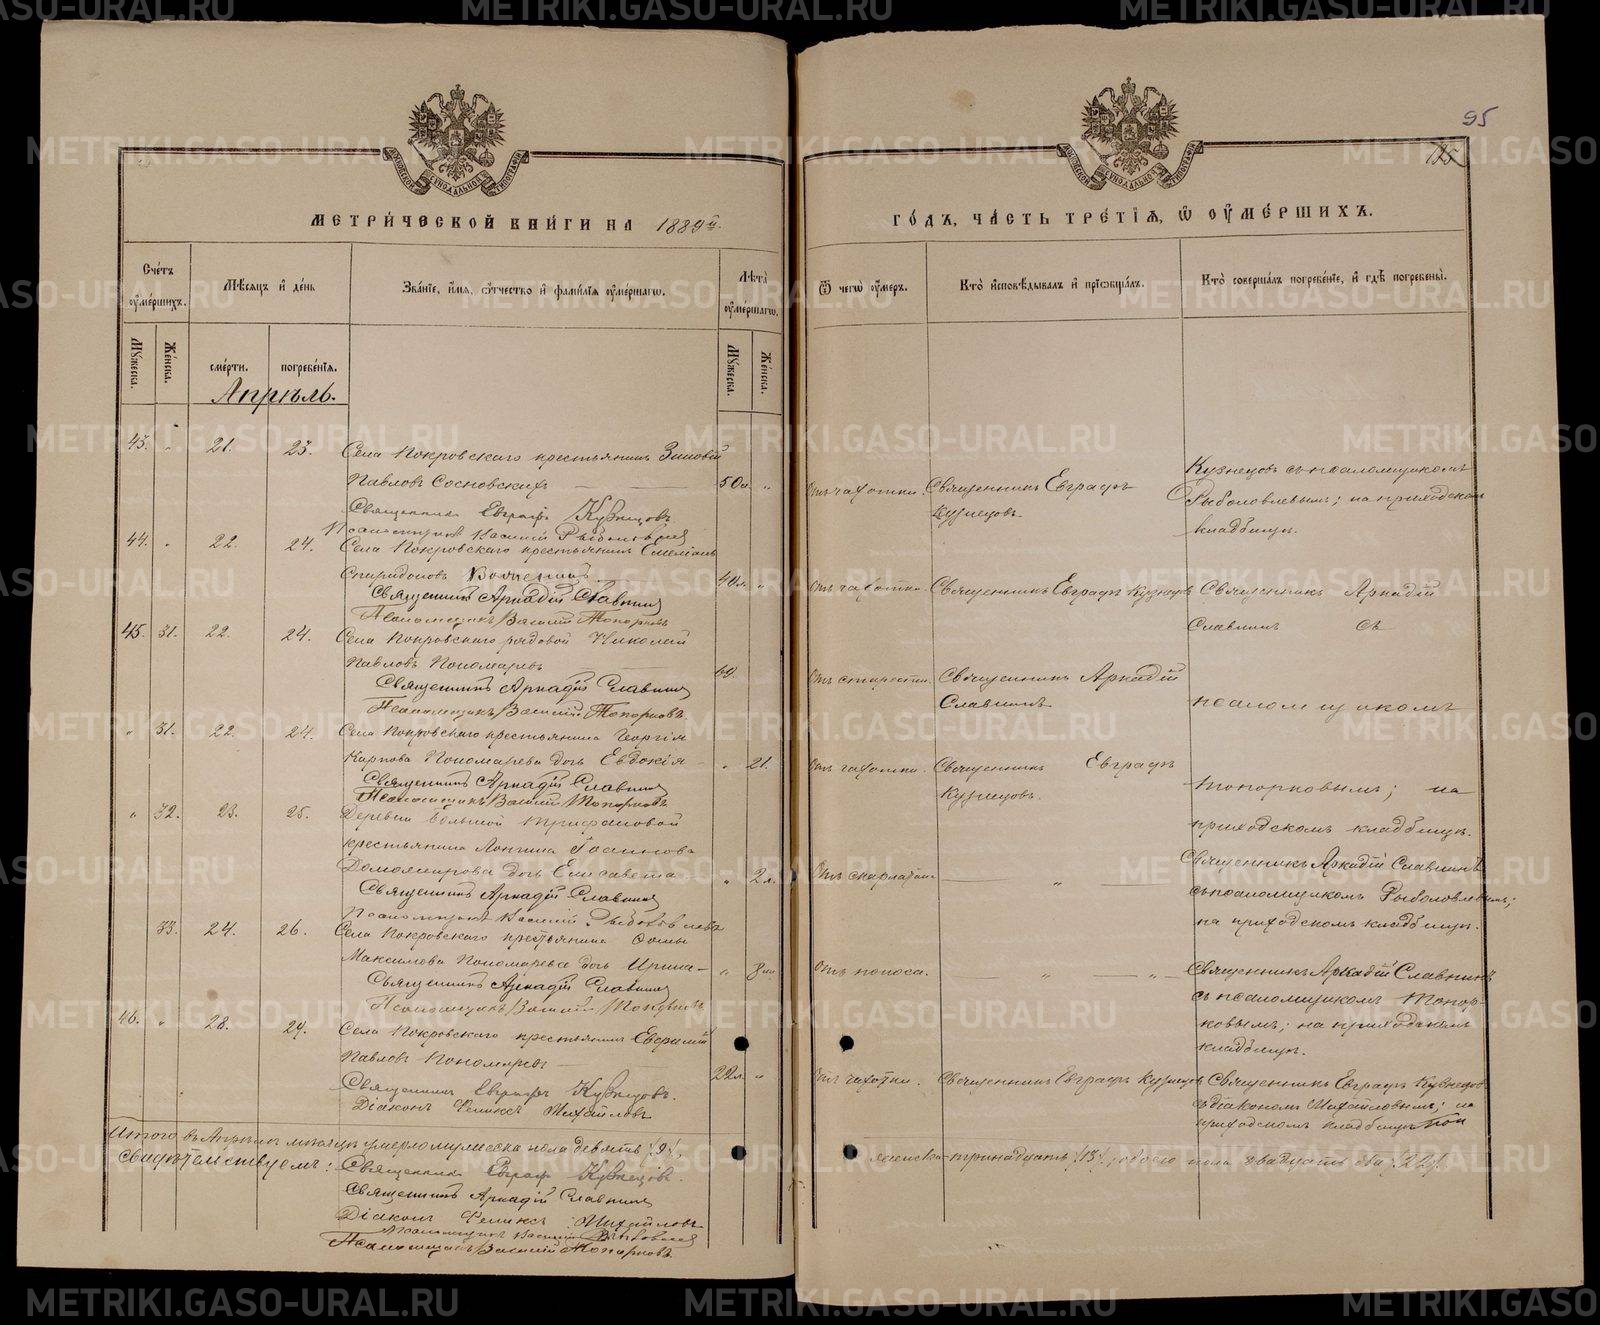 95
125
МЕТРИЧЕСКОЙ КНИГИ НА 1889й.
ГОДЪ, ЧАСТЬ ТРЕТІЯ, Ѿ ОУМЕРШИХЪ.
Счетъ оумершихъ.
Мѣсяцъ и день
Званіе, имя, отчество и фамилія оумершагѡ.
Лѣта оумершагѡ.
Ѿ чегѡ оумеръ.
Кто исповѣдывалъ и пріобщалъ.
Кто совершалъ погребеніе, и гдѣ погребены.
Мужеска.
Женска.
смерти.
погребенія.
Мужеска.
Женска.
Апрѣль.
43. " 21. 23. Села Покровскаго крестьянинъ Зиновій
Павловъ Сосновскихъ 50 л. "
Отъ чахотки.
Священникъ Евграфъ
Кузнецовъ.
Кузнецовъ съ псаломщикомъ
Рыболовлевымъ; на приходскомъ
кладбищѣ.
Священникъ Евграфъ Кузнецовъ
Псаломщикъ Василій Рыболовлевъ
44. " 22. 24. Села Покровскаго крестьянинъ Емеліанъ
Спиридоновъ 40 л. "
Отъ чахотки.
Священникъ Евграфъ Кузнецовъ
Священникъ Аркадій
Славнинъ съ
Священникъ Аркадій Славнинъ
Псаломщикъ Василій Топорковъ
45. 31. 22. 24. Села Покровскаго рядовой Николай
Павловъ Пономаревъ 69.
Отъ старости.
Священникъ Аркадій
Славнинъ
псаломщикомъ
Священникъ Аркадій Славнинъ
Псаломщикъ Василій Топорковъ.
" 31. 22. 24. Села Покровскаго крестьянина Георгія
Карпова Пономарева дочь Евдокія " 21.
Отъ чахотки.
Священникъ Евграфъ
Кузнецовъ.
Топорковымъ; на
приходскомъ кладбищѣ.
Священникъ Аркадій Славнинъ
Псаломщикъ Василій Топорковъ
" 32. 23. 25. Деревни Большой Трифановой
крестьянина Лонгина Іоаннова
Домолмирова дочь Елисавета " 2 л.
Отъ скарлатин
Священникъ Аркадій Славнинъ
съ псаломщикомъ Рыболовлевымъ;
на приходскомъ кладбищѣ.
Священникъ Аркадій Славнинъ
Псаломщикъ Василій Рыболовлевъ
33. 24. 26. Села Покровскаго крестьянина Ѳомы
Максимова Пономарева дочь Ирина "
Отъ поноса.
Священникъ Аркадій Славнинъ
съ псаломщикомъ Топор-
ковымъ; на приходскомъ
кладбищѣ.
Священникъ Аркадій Славнинъ
Псаломщикъ Василій Топорковъ
46. " 28. 29. Села Покровскаго крестьянинъ Евфимій
Павловъ Пономаревъ 22 л. "
Отъ чахотки.
Священникъ Евграфъ Кузнецовъ
Священникъ Евграфъ Кузнецовъ
съ діакономъ Михайловымъ; на
приходскомъ кладбищѣ
Священникъ Евграфъ Кузнецовъ.
Діаконъ Феликсъ Михайловъ
Итого въ Апрѣлѣ мѣсяцѣ умерло мужеска пола девять /9/,
женска тринадцать /13/, обоего пола двадцать два /22/.
Свидѣтельствуемъ: Священникъ Евграфъ Кузнецовъ.
Священникъ Аркадій Славнинъ
Діаконъ Феликсъ Михайловъ
Псаломщикъ Василій Рыболовлевъ
Псаломщикъ Василій Топорковъ.
METRIKI.GASO-URAL.RU